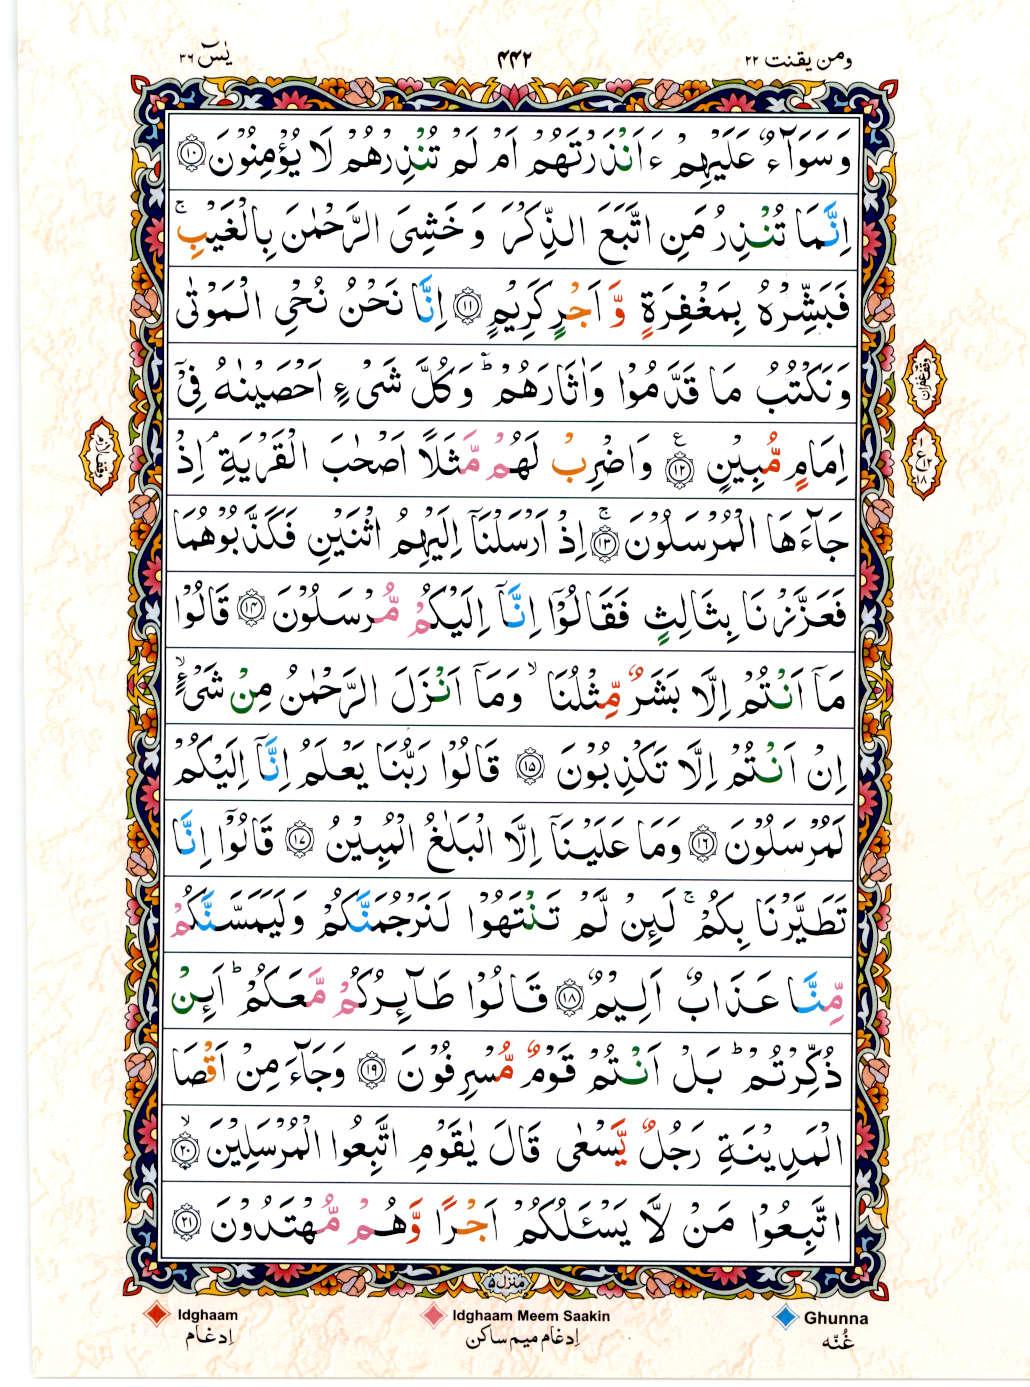 ومن یقنت ۲۲
۴۴۲
یٰسٓ ۳۶
وَسَوَآءٌ عَلَیْهِمْ ءَاَنْذَرْتَهُمْ اَمْ لَمْ تُنْذِرْهُمْ لَا یُؤْمِنُوْنَ ﴿۱۰﴾
اِنَّمَا تُنْذِرُ مَنِ اتَّبَعَ الذِّكْرَ وَ خَشِیَ الرَّحْمٰنَ بِالْغَیْبِ ۚ
فَبَشِّرْهُ بِمَغْفِرَةٍ وَّ اَجْرٍ كَرِیْمٍ ﴿۱۱﴾ اِنَّا نَحْنُ نُحْیِ الْمَوْتٰی
وَنَكْتُبُ مَا قَدَّمُوْا وَاٰثَارَهُمْ ؕ وَكُلَّ شَیْءٍ اَحْصَیْنٰهُ فِیْۤ
اِمَامٍ مُّبِیْنٍ ﴿۱۲﴾ وَاضْرِبْ لَهُمْ مَّثَلًا اَصْحٰبَ الْقَرْیَةِ ۘ اِذْ
جَآءَهَا الْمُرْسَلُوْنَ ﴿۱۳﴾ۚ اِذْ اَرْسَلْنَاۤ اِلَیْهِمُ اثْنَیْنِ فَكَذَّبُوْهُمَا
فَعَزَّزْنَا بِثَالِثٍ فَقَالُوْۤا اِنَّاۤ اِلَیْكُمْ مُّرْسَلُوْنَ ﴿۱۴﴾ قَالُوْا
مَاۤ اَنْتُمْ اِلَّا بَشَرٌ مِّثْلُنَا ۙ وَمَاۤ اَنْزَلَ الرَّحْمٰنُ مِنْ شَیْءٍ ۙ
اِنْ اَنْتُمْ اِلَّا تَكْذِبُوْنَ ﴿۱۵﴾ قَالُوْا رَبُّنَا یَعْلَمُ اِنَّاۤ اِلَیْكُمْ
لَمُرْسَلُوْنَ ﴿۱۶﴾ وَمَا عَلَیْنَاۤ اِلَّا الْبَلٰغُ الْمُبِیْنُ ﴿۱۷﴾ قَالُوْۤا اِنَّا
تَطَیَّرْنَا بِكُمْ ۚ لَىِٕنْ لَّمْ تَنْتَهُوْا لَنَرْجُمَنَّكُمْ وَلَیَمَسَّنَّكُمْ
مِّنَّا عَذَابٌ اَلِیْمٌ ﴿۱۸﴾ قَالُوْا طَآىِٕرُكُمْ مَّعَكُمْ ؕ اَىِٕنْ
ذُكِّرْتُمْ ؕ بَلْ اَنْتُمْ قَوْمٌ مُّسْرِفُوْنَ ﴿۱۹﴾ وَجَآءَ مِنْ اَقْصَا
الْمَدِیْنَةِ رَجُلٌ یَّسْعٰی قَالَ یٰقَوْمِ اتَّبِعُوا الْمُرْسَلِیْنَ ﴿۲۰﴾ۙ
اتَّبِعُوْا مَنْ لَّا یَسْـَٔلُكُمْ اَجْرًا وَّهُمْ مُّهْتَدُوْنَ ﴿۲۱﴾
وقف غفران
۱
ع
۱۲
۱۸
وقف لازم
منزل ۵
Ghunna
غُنّه
Idghaam Meem Saakin
اِدغام میم ساکن
Idghaam
اِدغام